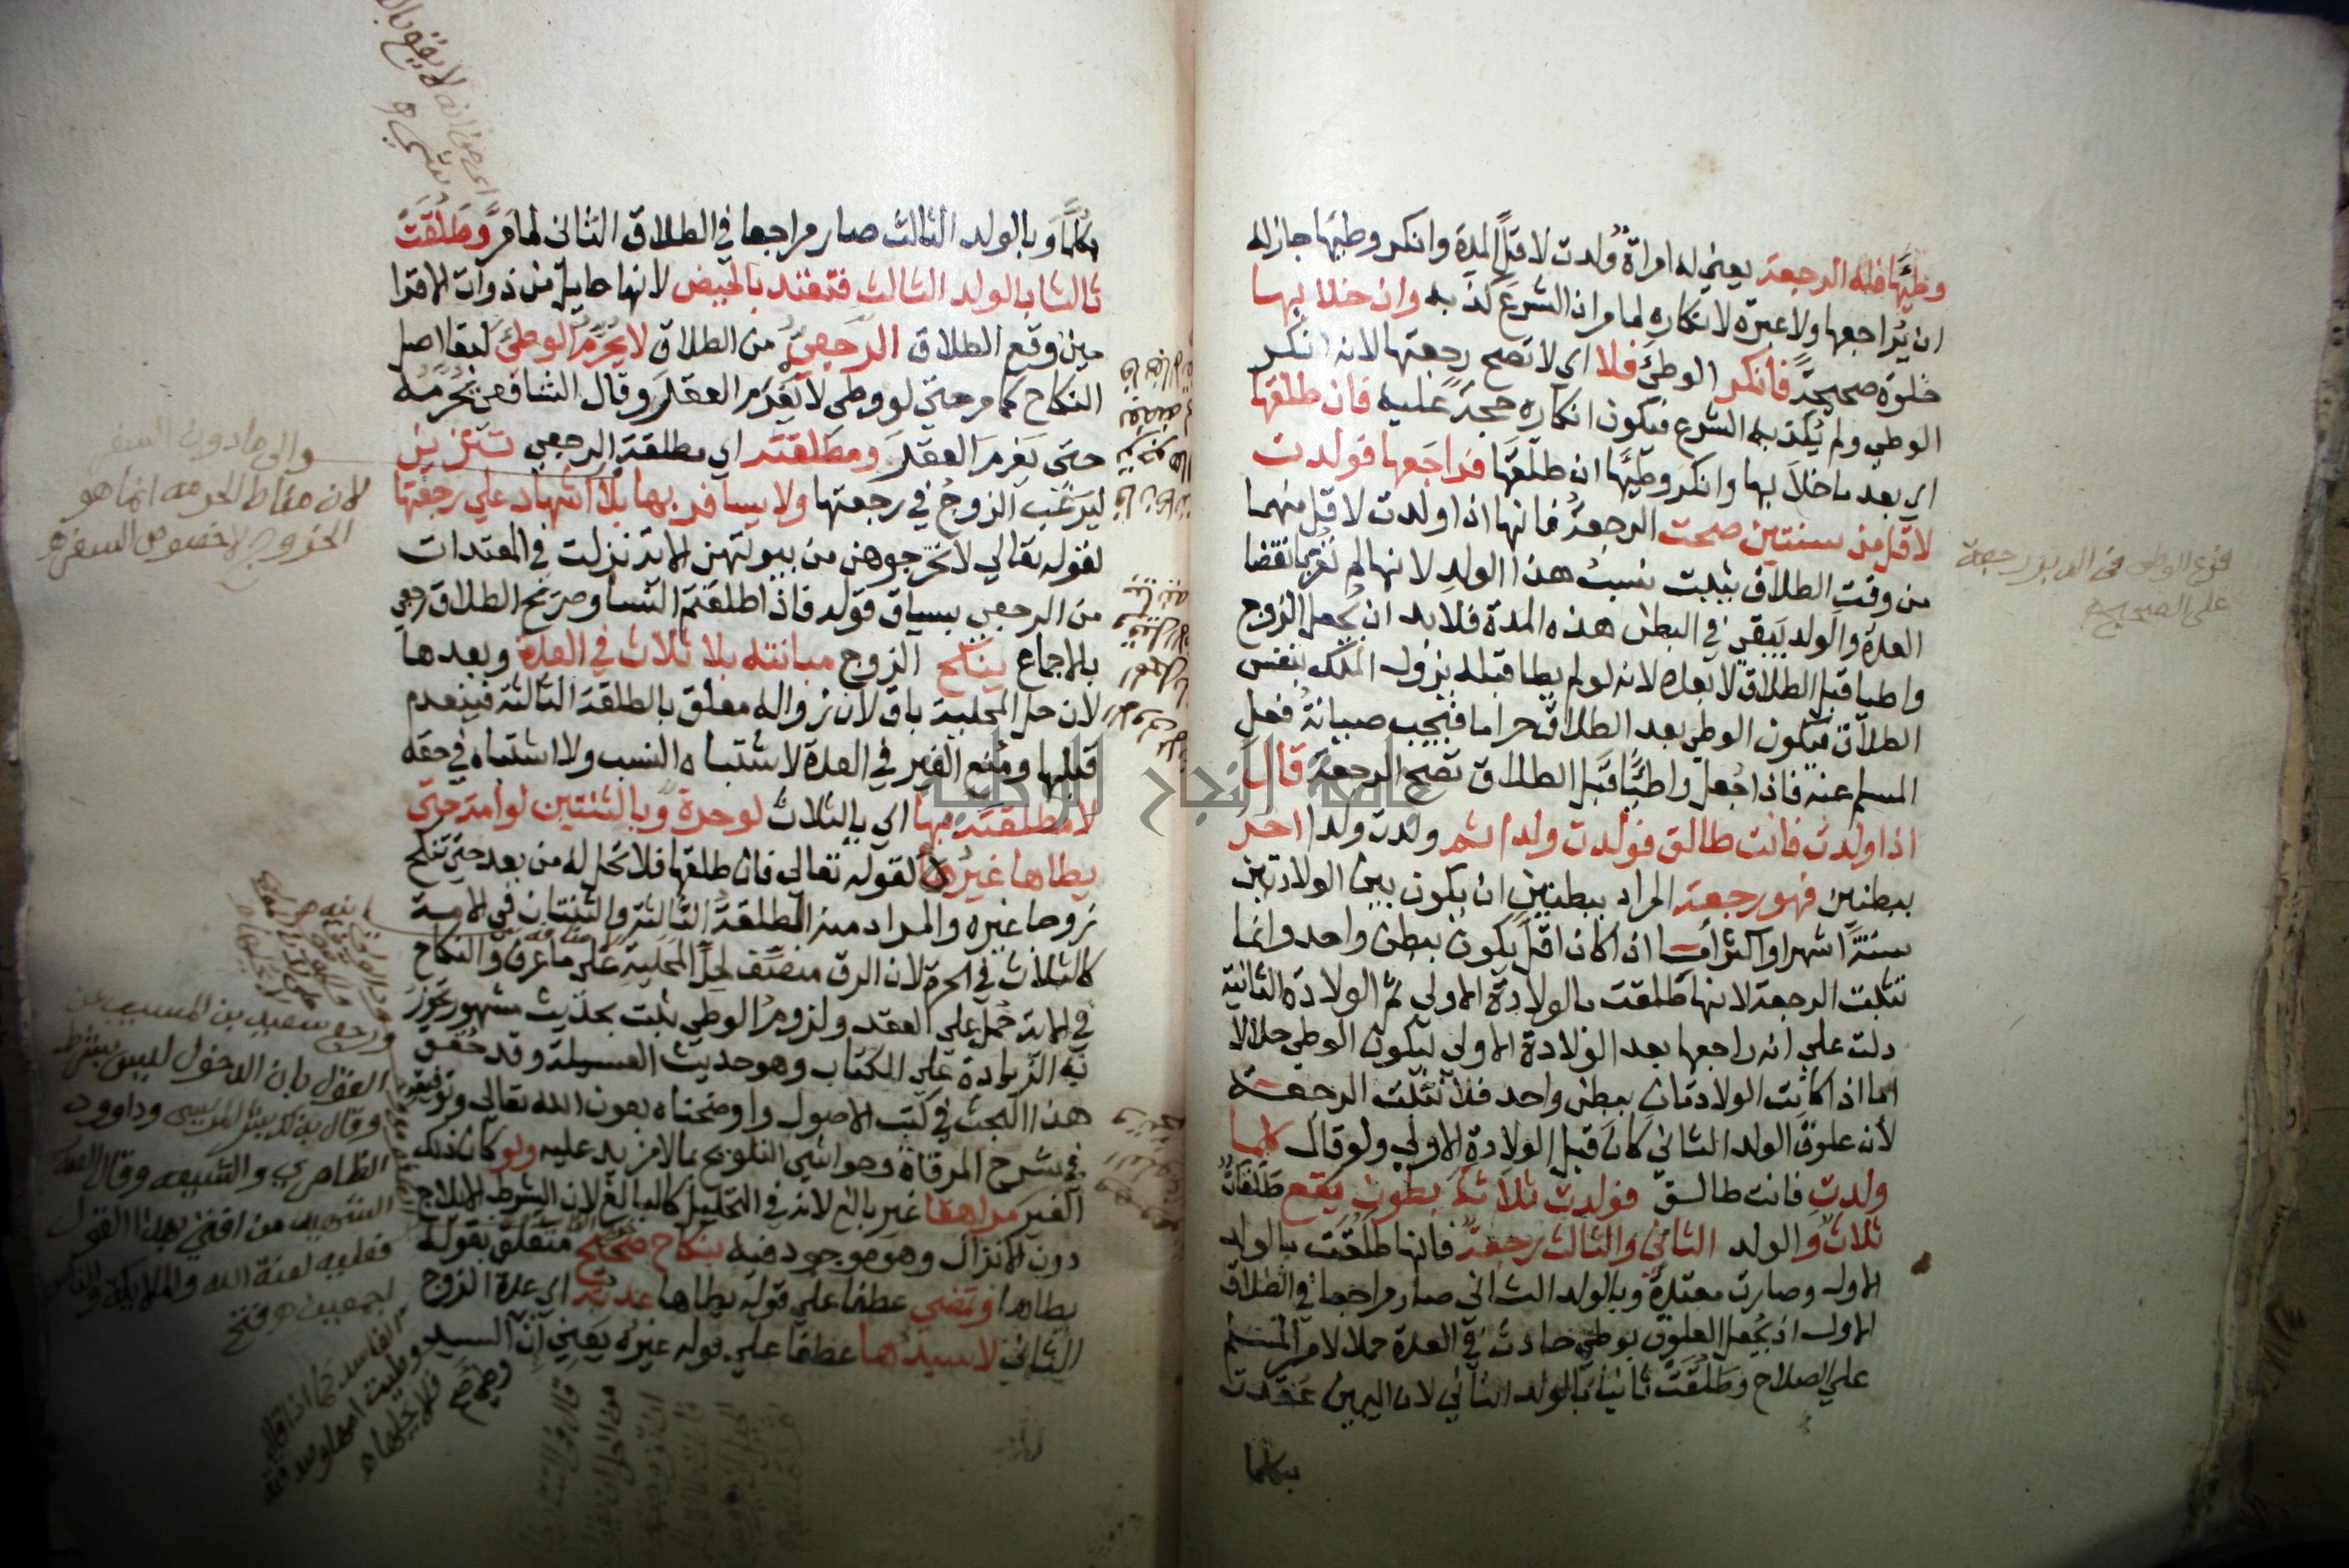 وطئها فله الرجعة يعني له امراة ولدت لاقل المدة وانكر وطيها جاز له
ان يراجعها ولا عبرة لانكاره لما مر ان الشرع كذبه وان خلا بها
خلوة صحيحة فانكر الوطئ فلا اي لا تصح رجعتها لانه انكر
الوطي ولم يكذبه الشرع فيكون انكاره حجة عليه فان طلقها
اي بعد ما خلا بها وانكر وطيها ان طلقها فراجعها فولدت
لاقل من سنتين صحت الرجعة فانها اذا ولدت لاقل منهما
من وقت الطلاق يثبت نسب هذا الولد لانها لم تقر بانقضا
العدة والولد يبقى في البطن هذه المدة فلا بد ان يجعل الزوج
واطيا قبل الطلاق لا بعده لانه لو لم يطا قبله يزول الملك بنفس
الطلاق فيكون الوطي بعد الطلاق حراما فيجب صيانة فعل
المسلم عنه فاذا جعل واطيا قبل الطلاق تصح الرجعة قال
اذا ولدت فانت طالق فولدت ولدا ثم ولدت ولدا اخر
ببطنين فهو رجعة المراد ببطنين ان يكون بين الولادتين
ستة اشهر او اكثر اما اذا كان اقل يكون ببطن واحد وانما
تثبت الرجعة لانها طلقت بالولادة الاولى ثم الولادة الثانية
دلت علي انه راجعها بعد الولادة الاولي ليكون الوطي حلالا
اما اذا كانت الولادتان ببطن واحد فلا تثبت الرجعة
لان علوق الولد الثاني كان قبل الولادة الاولي ولو قال كلما
ولدت فانت طالق فولدت ثلاثة بطون يقع طلقات
ثلاث والولد الثاني والثالث رجعة فانها طلقت بالولد
الاول وصارت معتدة وبالولد الثاني صار مراجعا في الطلاق
الاول اذ يجعل العلوق بوطي حادث في العدة حملا لامر المسلم
علي الصلاح وطلقت ثانيا بالولد الثاني لان اليمين عقدت
بكلما
فرع الوطي في الدبر رجعة
على الصحيح
بكلما وبالولد الثالث صار مراجعا في الطلاق الثاني لما مر وطلقت
ثالثا بالولد الثالث فتعتد بالحيض لانها حايل من ذوات الاقرا
حين وقع الطلاق الرجعي من الطلاق لا يحرم الوطئ لبقا اصل
النكاح كما مر حتى لو وطي لا يغرم العقر وقال الشافعي يحرمه
حتى يغرم العقر ومطلقته اي مطلقة الرجعي تتزين
ليرغب الزوج في رجعتها ولا يسافر بها بلا اشهاد علي رجعتها
لقوله تعالي لا تخرجوهن من بيوتهن الاية نزلت في المعتدات
من الرجعي بسياق قوله فاذا طلقتم النسا وصريح الطلاق رجعي
بالاجماع ينكح الزوج مبانته بلا ثلاث في العدة وبعدها
لان حل المحلية باق لان زواله معلق بالطلقة الثالثة فينعدم
قبلها ومنع الغير في العدة لاشتباه النسب ولا اشتباه في حقه
لا مطلقته بها اي بالثلاث لو حرة وبالثنتين لو امة حتى
يطاها غيره لقوله تعالى فان طلقها فلا تحل له من بعد حتى تنكح
زوجا غيره والمراد منه الطلقة الثالثة والثنتان في الامة
كالثلاث في الحرة لان الرق منصف لحل المحلية علي ما عرف والنكاح
في الاية حمل علي العقد ولزوم الوطي ثبت بحديث مشهور يجوز
به الزيادة علي الكتاب وهو حديث العسيلة وقد حقق
هذا البحث في كتب الاصول واوضحناه بعون الله تعالي وتوفيقه
في شرح المرقاة وحواشي التلويح بما لا مزيد عليه ولو كان ذلك
الغير مراهقا غير بالغ لانه في التحليل كالبالغ لان الشرط الايلاج
دون الانزال وهو موجود فيه بنكاح صحيح متعلق بقوله
يطاها وتمضي عطفا علي قوله يطاها عدته اي عدة الزوج
الثاني لا سيدها عطفا علي قوله غيره يعني ان السيد
والى ما دون السفر
لان مناط الحرمه انما هو
الخروج لا خصوص السفر
ورجع سعيد بن المسيب عن
القول بان الدخول ليس بشرط
وقال به بشر المريسي وداوود
الظاهري والشيعه وقال الصدر
الشهيد من افتى بهذا القول
فعليه لعنة الله والملايكة والناس
اجمعين فتح
جامعة النجاح الوطنية